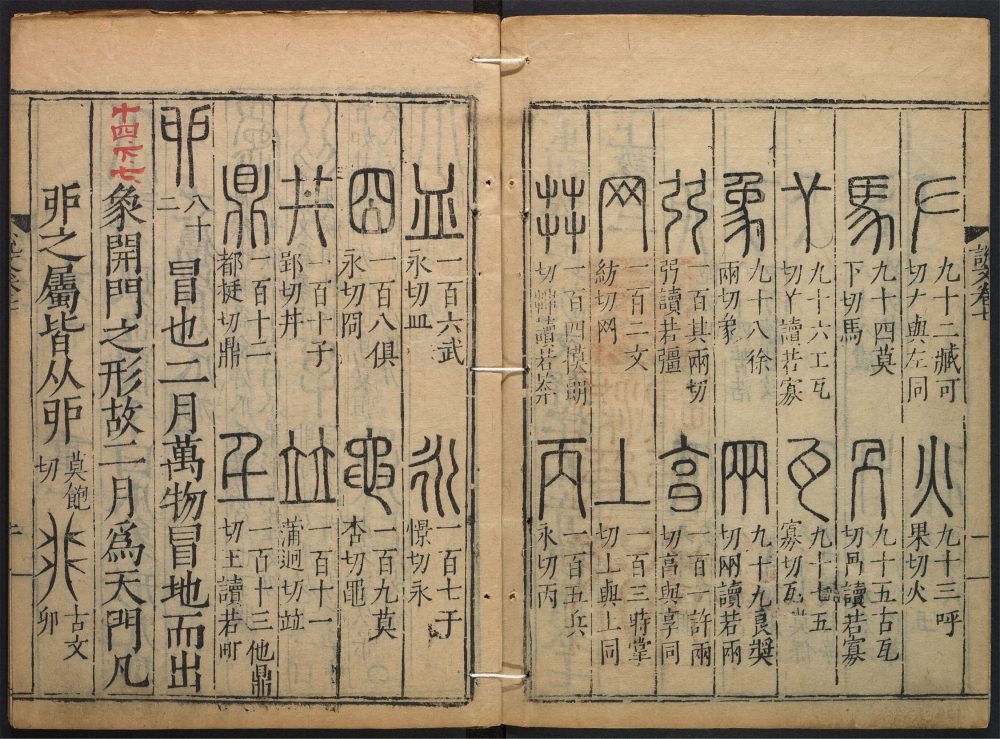 說文卷十
𠂇 九十二臧可切𠂇與左同 火 九十三呼果切火
馬 九十四莫下切馬 冎 九十五古瓦切冎讀若寡
丫 九十六工瓦切丫讀若寡 瓦 九十七五寡切瓦
象 九十八徐兩切象 㒳 九十九良奬切㒳讀若兩
弜 一百其兩切弜讀若彊 亯 一百一許兩切亯與享同
网 一百二文紡切网 丄 一百三時掌切丄與上同
茻 一百四模朗切茻讀若莽 丙 一百五兵永切丙
皿 一百六武永切皿 永 一百七于憬切永
囧 一百八俱永切冏 黽 一百九莫杏切黽
井 一百十子郢切井 竝 一百十一蒲迥切竝
鼎 一百十二都挺切鼎 𡈼 一百十三他鼎切𡈼讀若町
戼 八十二 冒也二月萬物冒地而出
十四.下.七
象開門之形故二月爲天門凡
戼之屬皆从戼 莫飽切 古文卯